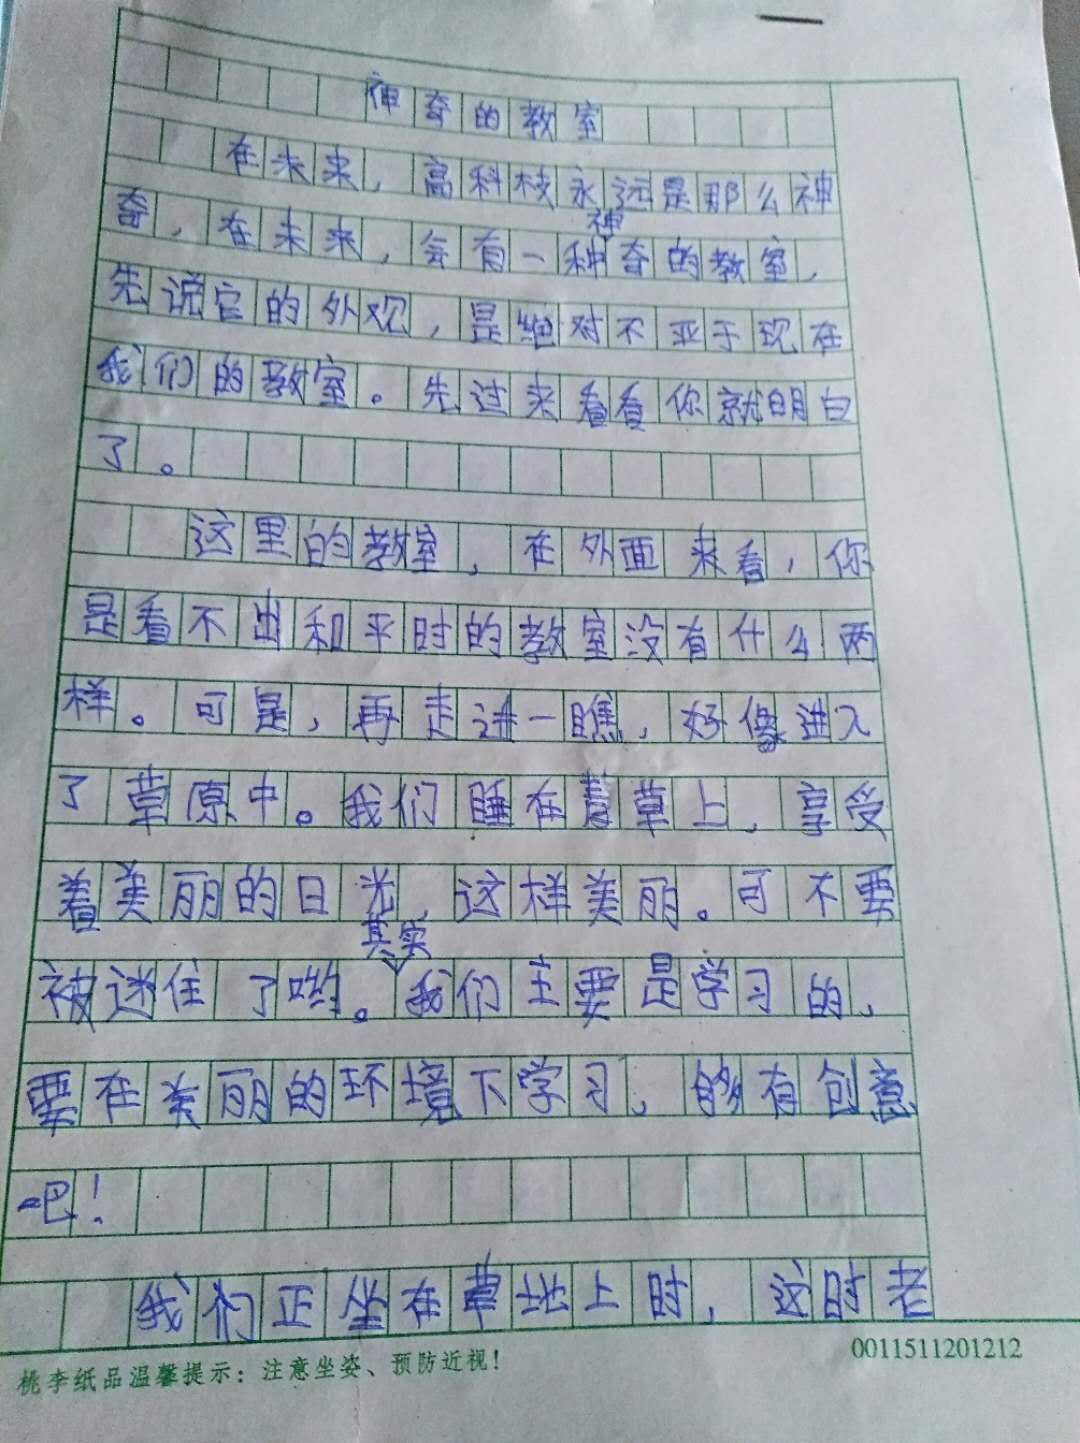 神奇的教室
在未来，高科技永远是那么神
奇，在未来，会有一种神奇的教室，
先说它的外观，是绝对不亚于现在
我们的教室。先过来看看你就明白
了。
这里的教室，在外面来看，你
是看不出和平时的教室没有什么两
样。可是，再走进一瞧，好像进入
了草原中。我们睡在青草上，享受
着美丽的日光，这样美丽。可不要
被迷住了哟。其实我们主要是学习的，
要在美丽的环境下学习，够有创意
吧！
我们正坐在草地上时，这时老
桃李纸品温馨提示：注意坐姿、预防近视！
0011511201212